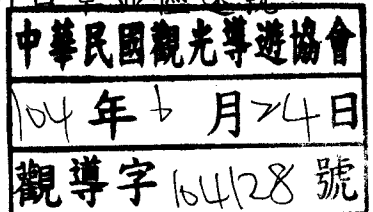 中華民國觀光導遊協會
104年6月24日
觀導字104128號